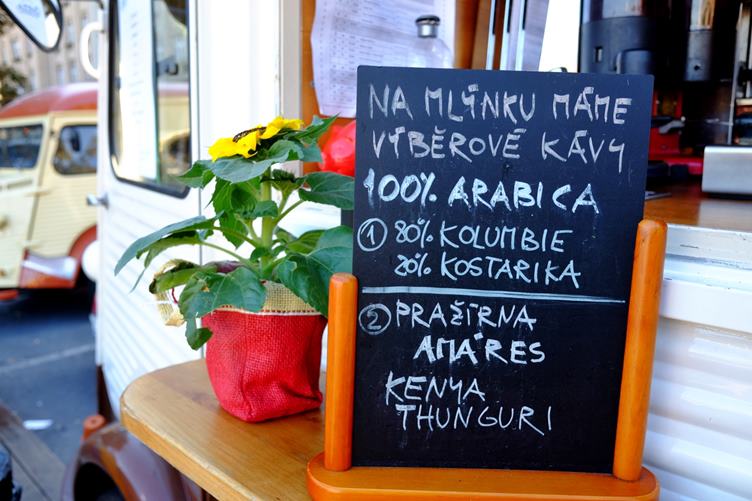 NA MLÝNKU MÁME
VÝBĚROVÉ KÁVY
100% ARABICA
1 80% KOLUMBIE
20% KOSTARIKA
2 PRAŽÍRNA
AMÁRES
KENYA
THUNGURI